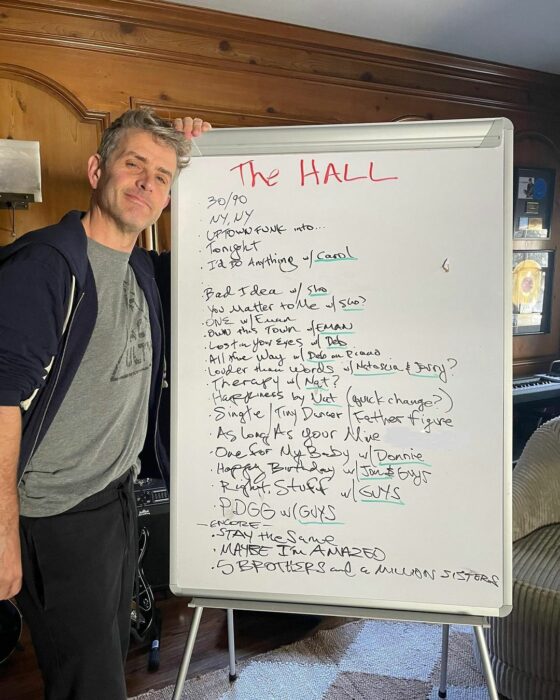 The HALL
· 30/90
· NY, NY
· UPTOWN FUNK into...
· Tonight
· I'd Do Anything w/ Carol
· Bad Idea w/ Sho
· You Matter to Me w/ Sho?
· ONE w/ Eman
· Own this Town w/ EMAN
· Lost in your Eyes w/ Deb
· All the Way w/ Deb on Piano
· Louder than Words w/ Natascia & Jerry?
· Therapy w/ Nat?
· Happiness by Nat (quick change?)
· Single/Tiny Dancer/Father figure
· As Long As Your Mine
· One for My Baby w/ Donnie
· Happy Birthday w/ Jon & Guys
· Right Stuff w/ GUYS
· PDGG w/ GUYS
- ENCORE -
· STAY the Same
· MAYBE I'm AMAZED
· 5 BROTHERS and a MILLION SISTERS